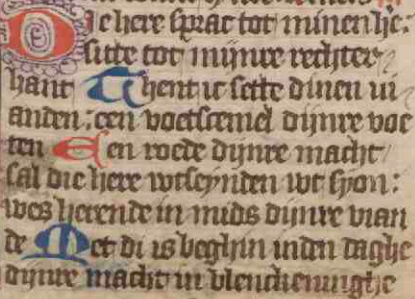 Die here sprac tot minen he:
sitte tot mijnre rechter
hant Thent ic sette dinen vi
anden: een voetscemel dijnre voe
ten Een roede dijnre macht
sal die here wtseynden wt syon:
wes herende in mids dijnre vian
de Met di is beghin inden daghe
dijnre macht in blenckenninghe